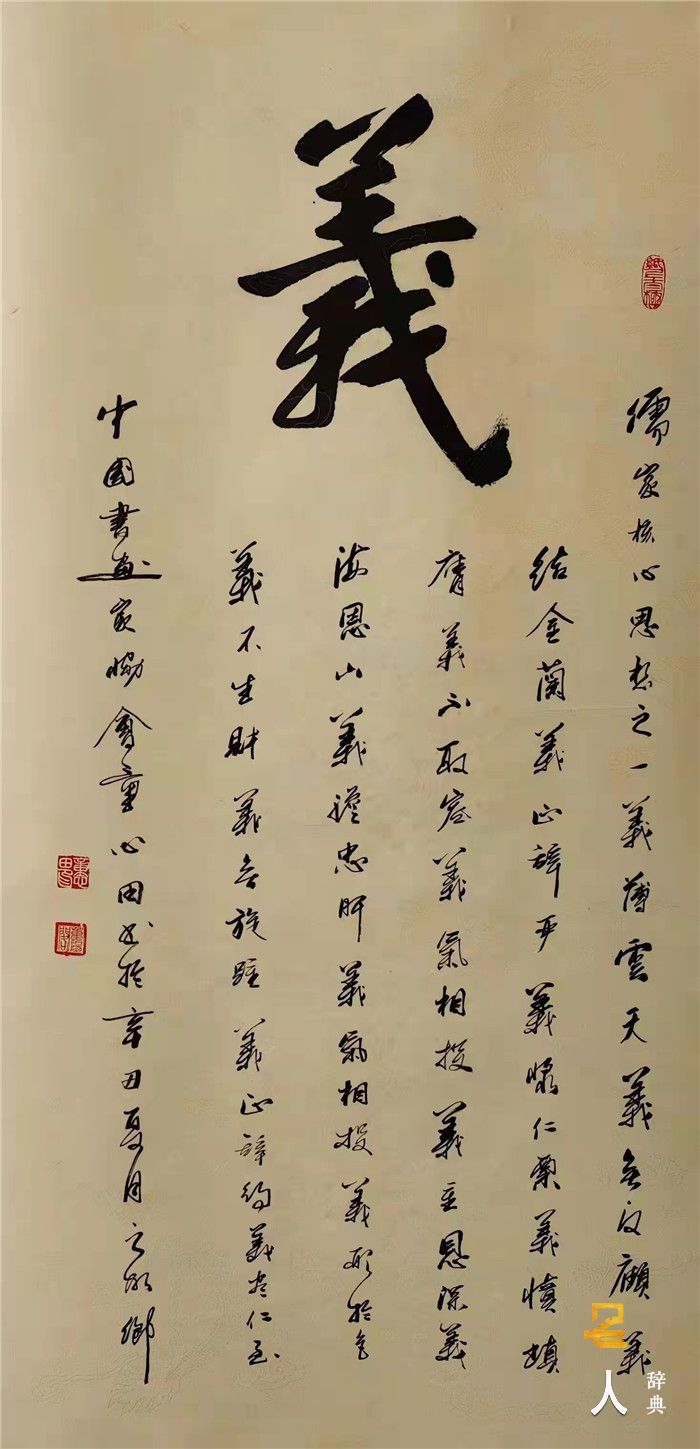 義
儒家核心思想之一義薄雲天義無反顧義
結金蘭義正辭嚴義漿仁粟義憤填
膺義不取容義氣相投義重恩深義
海恩山義膽忠肝義氣相投義形於色
義不生財義無旋踵義正辭約義盡仁至
中國書畫家協會童心田書於辛丑夏月
人
辞典